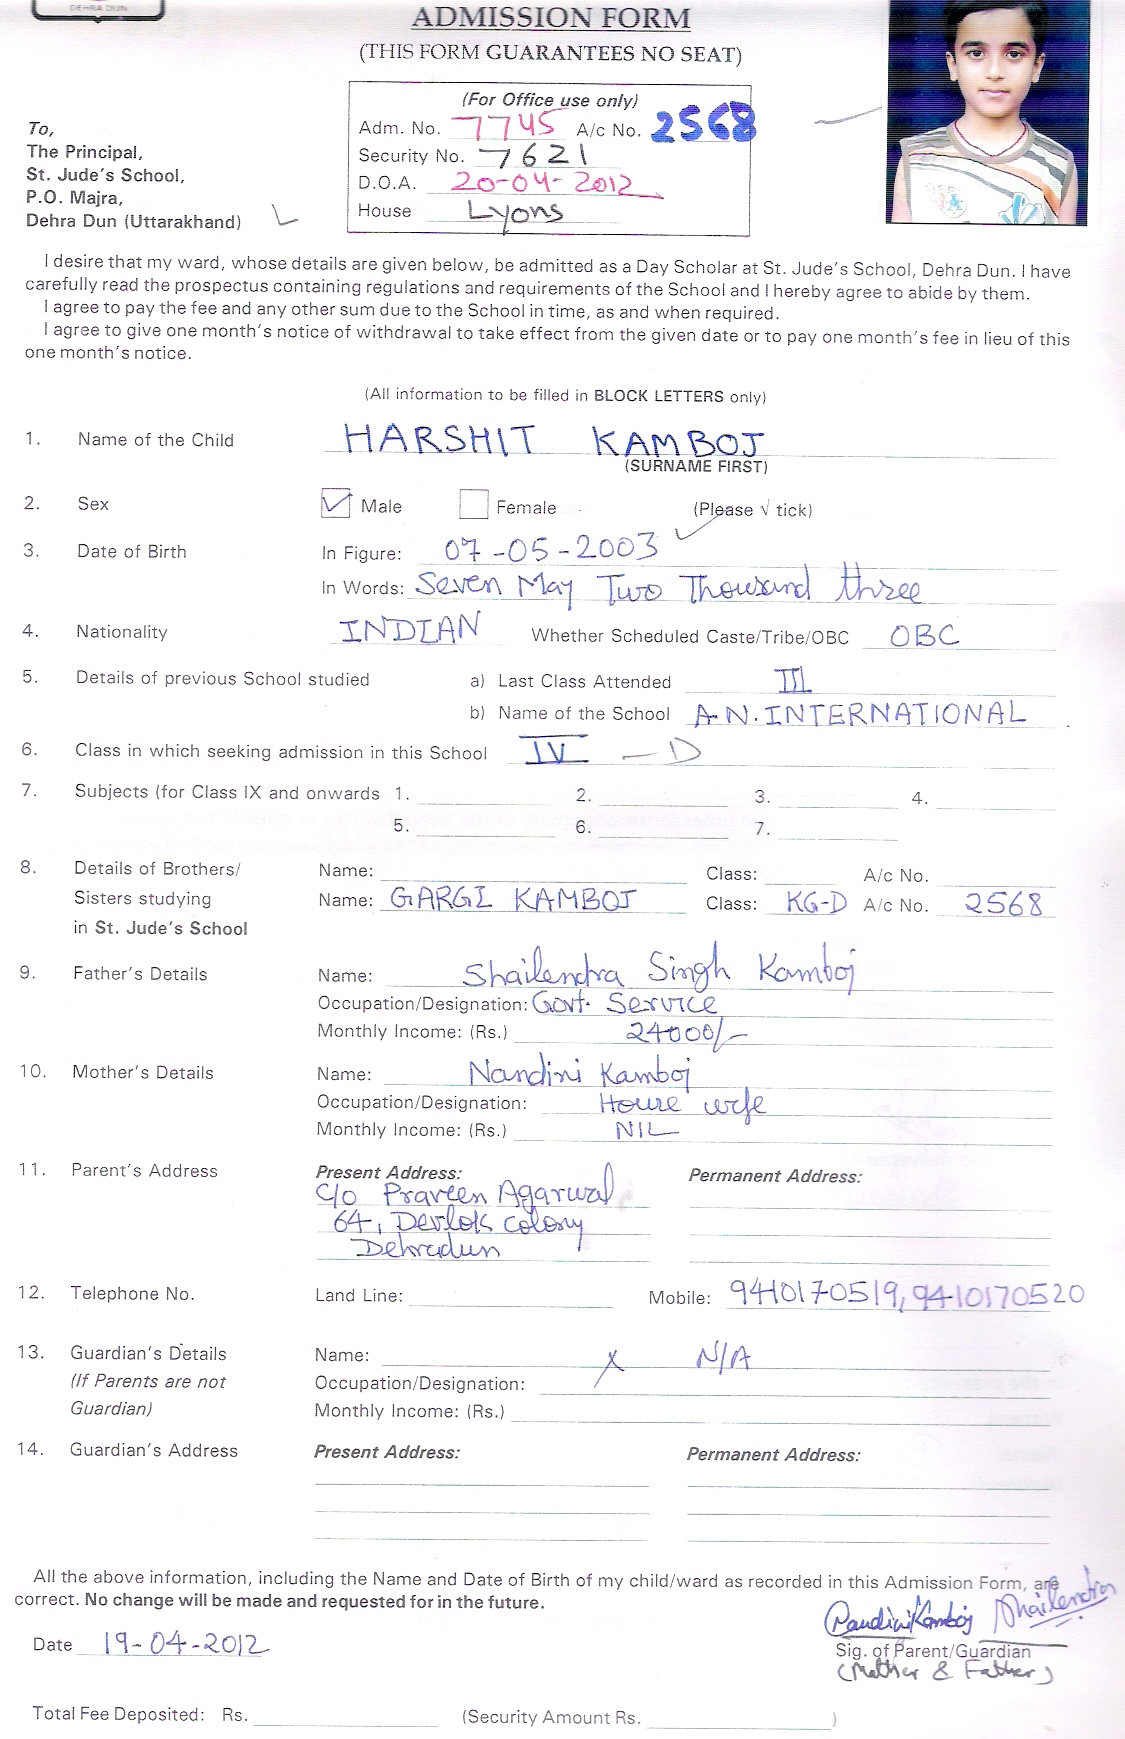 DEHRA DUN
ADMISSION FORM
(THIS FORM GUARANTEES NO SEAT)
(For Office use only)
Adm. No. 7745 A/c No. 2568
Security No. 7621
D.O.A. 20-04-2012
House Lyons
To,
The Principal,
St. Jude's School,
P.O. Majra,
Dehra Dun (Uttarakhand)
I desire that my ward, whose details are given below, be admitted as a Day Scholar at St. Jude's School, Dehra Dun. I have
carefully read the prospectus containing regulations and requirements of the School and I hereby agree to abide by them.
I agree to pay the fee and any other sum due to the School in time, as and when required.
I agree to give one month's notice of withdrawal to take effect from the given date or to pay one month's fee in lieu of this
one month's notice.
(All information to be filled in BLOCK LETTERS only)
1. Name of the Child HARSHIT KAMBOJ
(SURNAME FIRST)
2. Sex Male Female (Please √ tick)
3. Date of Birth In Figure: 07-05-2003
In Words: Seven May Two Thousand three
4. Nationality INDIAN Whether Scheduled Caste/Tribe/OBC OBC
5. Details of previous School studied a) Last Class Attended III
b) Name of the School A.N. INTERNATIONAL
6. Class in which seeking admission in this School IV - D
7. Subjects (for Class IX and onwards 1. 2. 3. 4.
5. 6. 7.
8. Details of Brothers/ Name: Class: A/c No.
Sisters studying Name: GARGI KAMBOJ Class: KG-D A/c No. 2568
in St. Jude's School
9. Father's Details Name: Shailendra Singh Kamboj
Occupation/Designation: Govt. Service
Monthly Income: (Rs.) 24000/-
10. Mother's Details Name: Nandini Kamboj
Occupation/Designation: House wife
Monthly Income: (Rs.) NIL
11. Parent's Address Present Address: Permanent Address:
C/o Praveen Agarwal
64, Devlok Colony
Dehradun
12. Telephone No. Land Line: Mobile: 9410170519, 9410170520
13. Guardian's Details Name: X N/A
(If Parents are not Occupation/Designation:
Guardian) Monthly Income: (Rs.)
14. Guardian's Address Present Address: Permanent Address:
All the above information, including the Name and Date of Birth of my child/ward as recorded in this Admission Form, are
correct. No change will be made and requested for in the future.
Nandini Kamboj Shailendra
Date 19-04-2012
Sig. of Parent/Guardian
(Mother & Father)
Total Fee Deposited: Rs. (Security Amount Rs. )